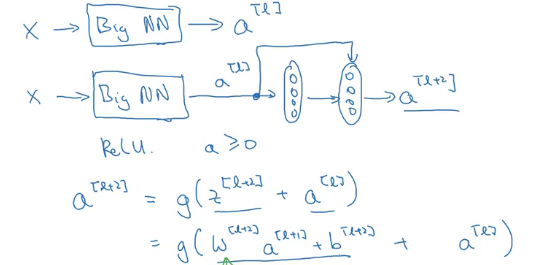 X → Big NN → a^[l]
X → Big NN a^[l] → a^[l+2]
ReLU. a ≥ 0
a^[l+2] = g(z^[l+2] + a^[l])
= g(W^[l+2] a^[l+1] + b^[l+2] + a^[l])